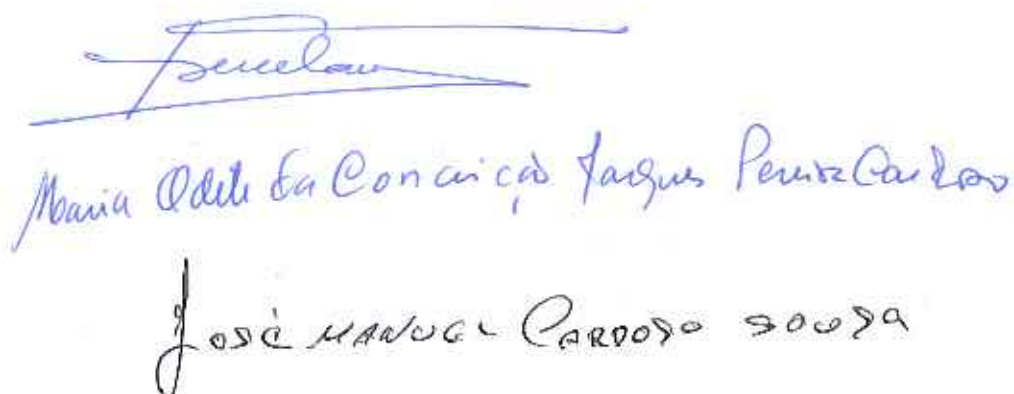 Maria Odete da Conceição Jaques Pereira Cardoso
José MANUEL CARDOSO SOUSA